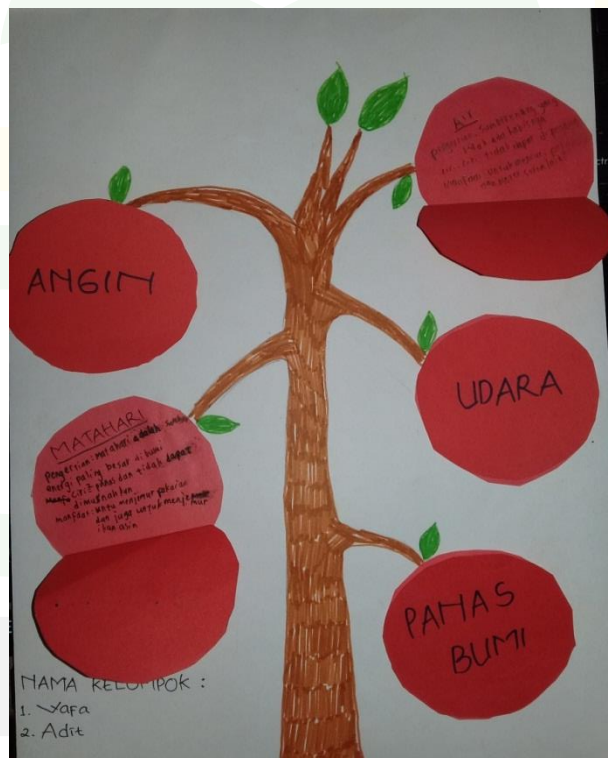 ANGIN
AIR
pengertian: Sumber energi yang
tidak ada habisnya
UDARA
MATAHARI
pengertian: matahari adalah sumber
energi paling besar di bumi
ciri: panas dan tidak dapat
dimusnahkan
manfaat: untu menjemur pakaian
dan juga untuk menjemur
ikan asin
PANAS
BUMI
NAMA KELOMPOK :
1. Yafa
2. Adit